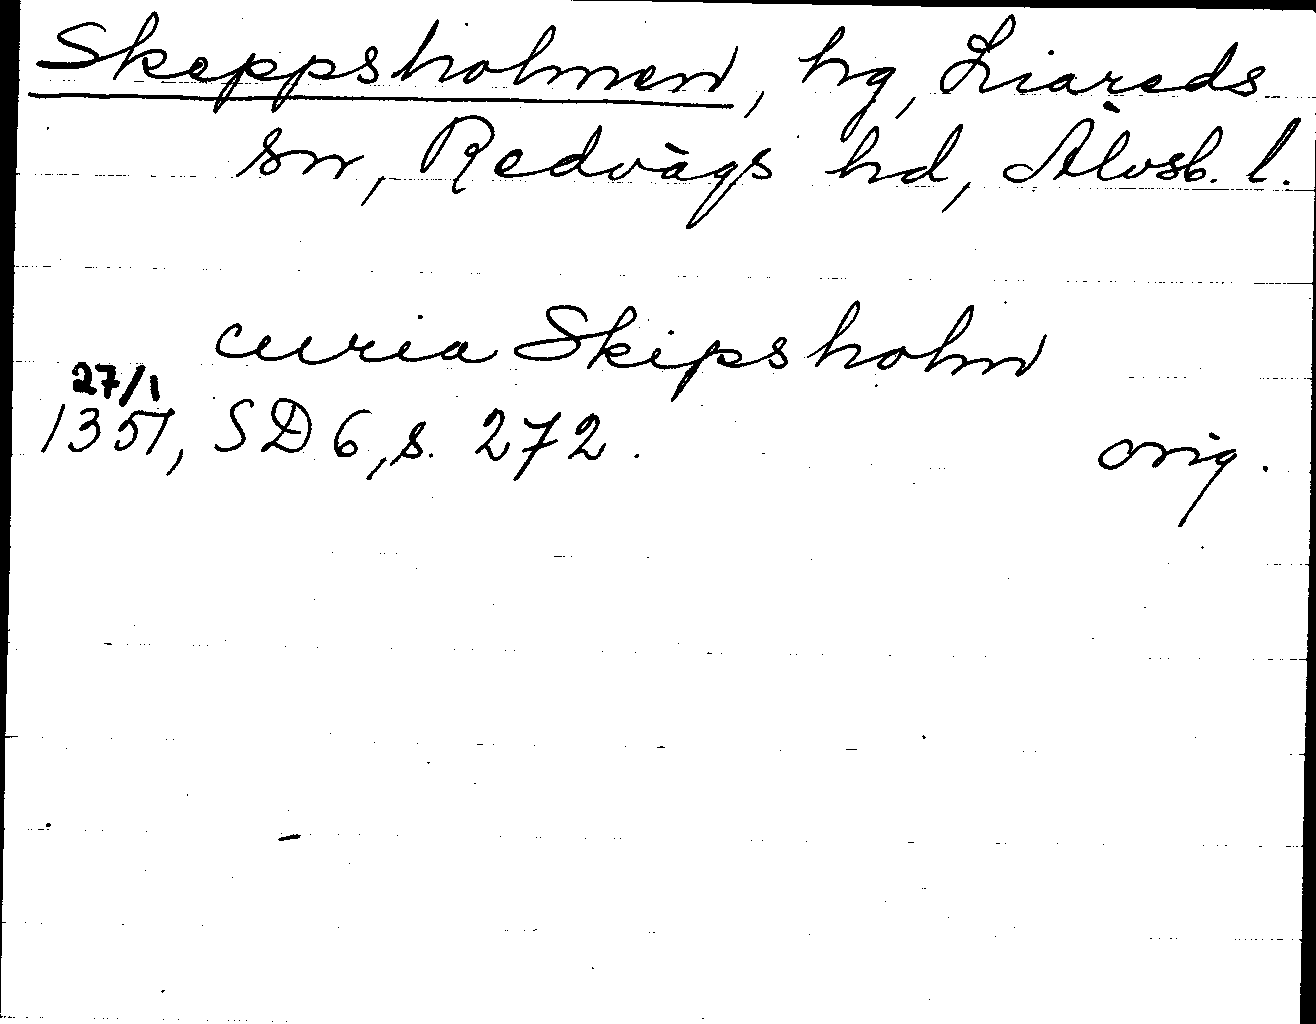 Skeppsholmen, hg, Liareds
sn, Redvägs hd, Älvsb. l.
curia Skipsholm
27/1
1351, SD 6, s. 272.
orig.